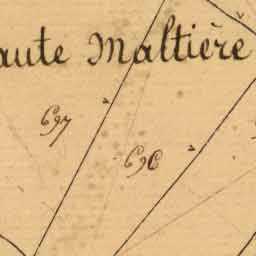 aute Maltière
697
696